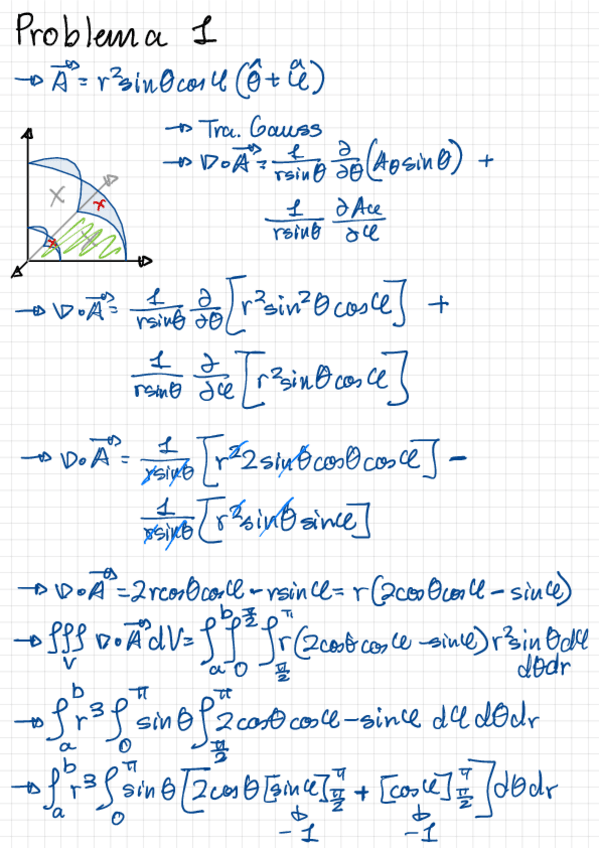 Problema 1
→ A⃗ = r²sinθcosφ(θ̂ + φ̂)
→ Tra. Gauss
→ ∇∘A⃗ = 1/(rsinθ) ∂/∂θ (Aθ sinθ) +
1/(rsinθ) ∂Aφ/∂φ
→ ∇∘A⃗ = 1/(rsinθ) ∂/∂θ [r²sin²θcosφ] +
1/(rsinθ) ∂/∂φ [r²sinθcosφ]
→ ∇∘A⃗ = 1/(rsinθ) [r²2sinθcosθcosφ] −
1/(rsinθ) [r²sinθsinφ]
→ ∇∘A⃗ = 2rcosθcosφ − rsinφ = r(2cosθcosφ − sinφ)
→ ∫∫∫_V ∇∘A⃗ dV = ∫_a^b ∫_0^{π/2} ∫_{π/2}^π r(2cosθcosφ − sinφ) r²sinθdφ
dθdr
→ ∫_a^b r³ ∫_0^π sinθ ∫_{π/2}^π 2cosθcosφ − sinφ dφdθdr
→ ∫_a^b r³ ∫_0^π sinθ [2cosθ[sinφ]_{π/2}^π + [cosφ]_{π/2}^π] dθdr
↓ ↓
−1 −1